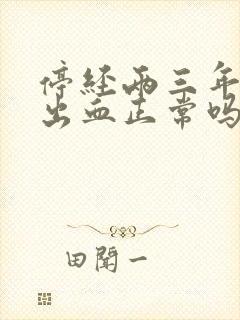 停经两三年
出血正常吗
田闻一